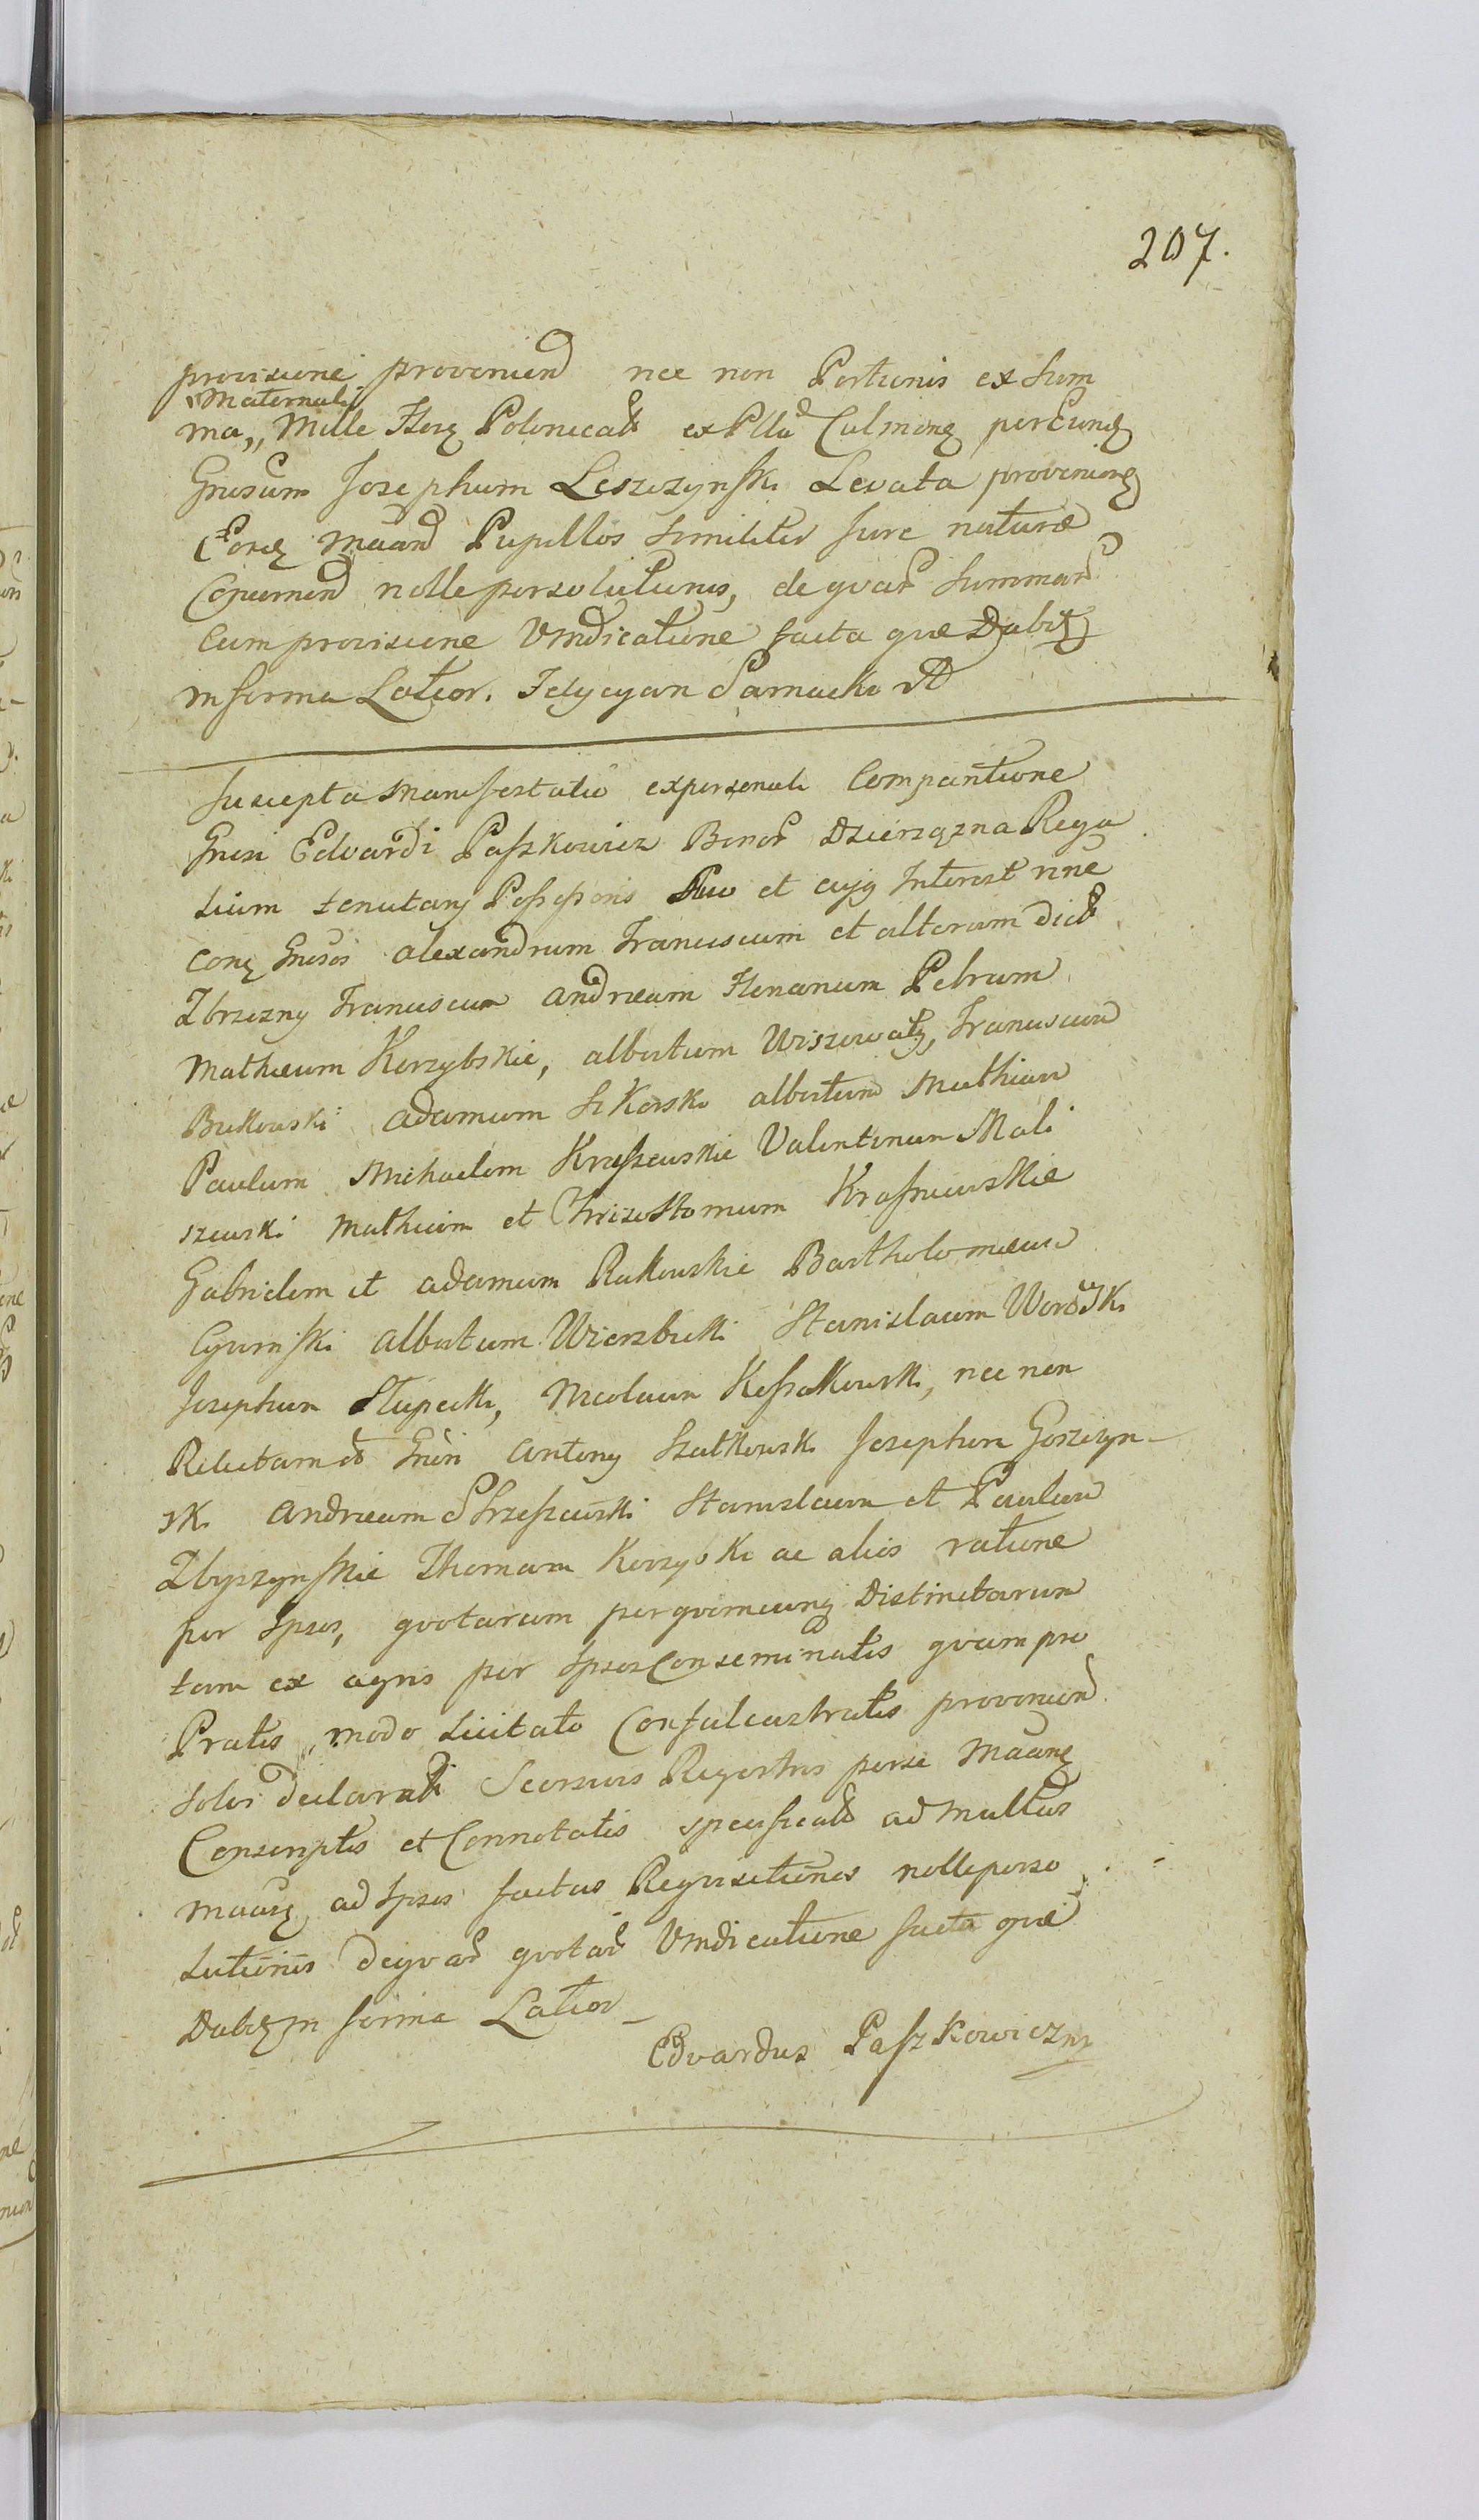 207.
provisione provenien nec non Portionis ex Sum
Maternali
ma,, Mille Flor Polonicali ex Plla Culmen per
Gnosum Josephum Leszczynski Levata provenien
Pupillos similiter Jure naturæ
nolle persolutionis, de qvar Summar
Cum provisione Vindicatione facta qvæ Dabit
in forma Latior. Felycyan Sarnacki
Suscepta Manifestatio ex personali Comparitione
Gnosi Edvardi Paszkowicz Bonor Dzierzązna Rega
lium tenutarij Possessoris Suo et cujq Interest nne
conq Gnosos Alexandrum Franciscum et alterum dict
Zbrzezny Franciscum Andræam Florianum Petrum
Mathæum Korzybskie, Albertum Wiszowaty, Franciscum
Bukowski Adamum Sikorski Albertum Mathiam
Paulum Michaelem Kraszewskie Valentinum Mali
szewski Mathiam et Chrizostomum Krasniewskie
Gabrielem et Adamum Rutkowskie Bartholomæum
Albertum Wierzbicki Stanislaum
Josephum Słupecki, Nicolaum Kossakowski, nec non
Relictam Antony Szatkowski Josephum Goszczyn-
ski Andræam Strzeszewski Stanislaum et Paulum
Zbyszynskie Thomam Korzybski ac alios ratione
per Ipsos, qvotarum per qvemcunq Distinctarum
tam ex agris per Ipsos Conseminatis qvam pro
Pratis,, modo licitato Confalcastratis provenien
solvi declarati Seorsivis Regestris per se Maan
Conscriptis et Connotatis specificat ad Multas
Maan ad Ipsos factas Reqvisitiones nolle perso
lutionis de qvar qvotar Vindicatione facta qvæ
Dabit in forma Latior_
Edvardus Paszkowicz mp